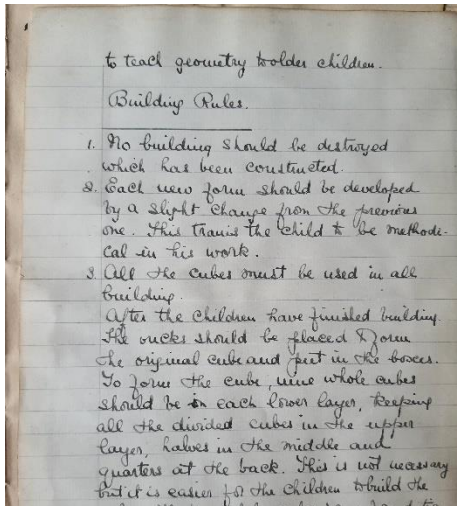 to teach geometry to older children.
Building Rules.
1. No building should be destroyed
which has been constructed.
2. Each new form should be developed
by a slight change from the previous
one. This trains the child to be methodi-
cal in his work.
3. All the cubes must be used in all
building.
After the children have finished building
the bricks should be placed to form
the original cube and put in the boxes.
To form the cube, nine whole cubes
should be in each lower layer, keeping
all the divided cubes in the upper
layer, halves in the middle and
quarters at the back. This is not necessary
but it is easier for the children to build the